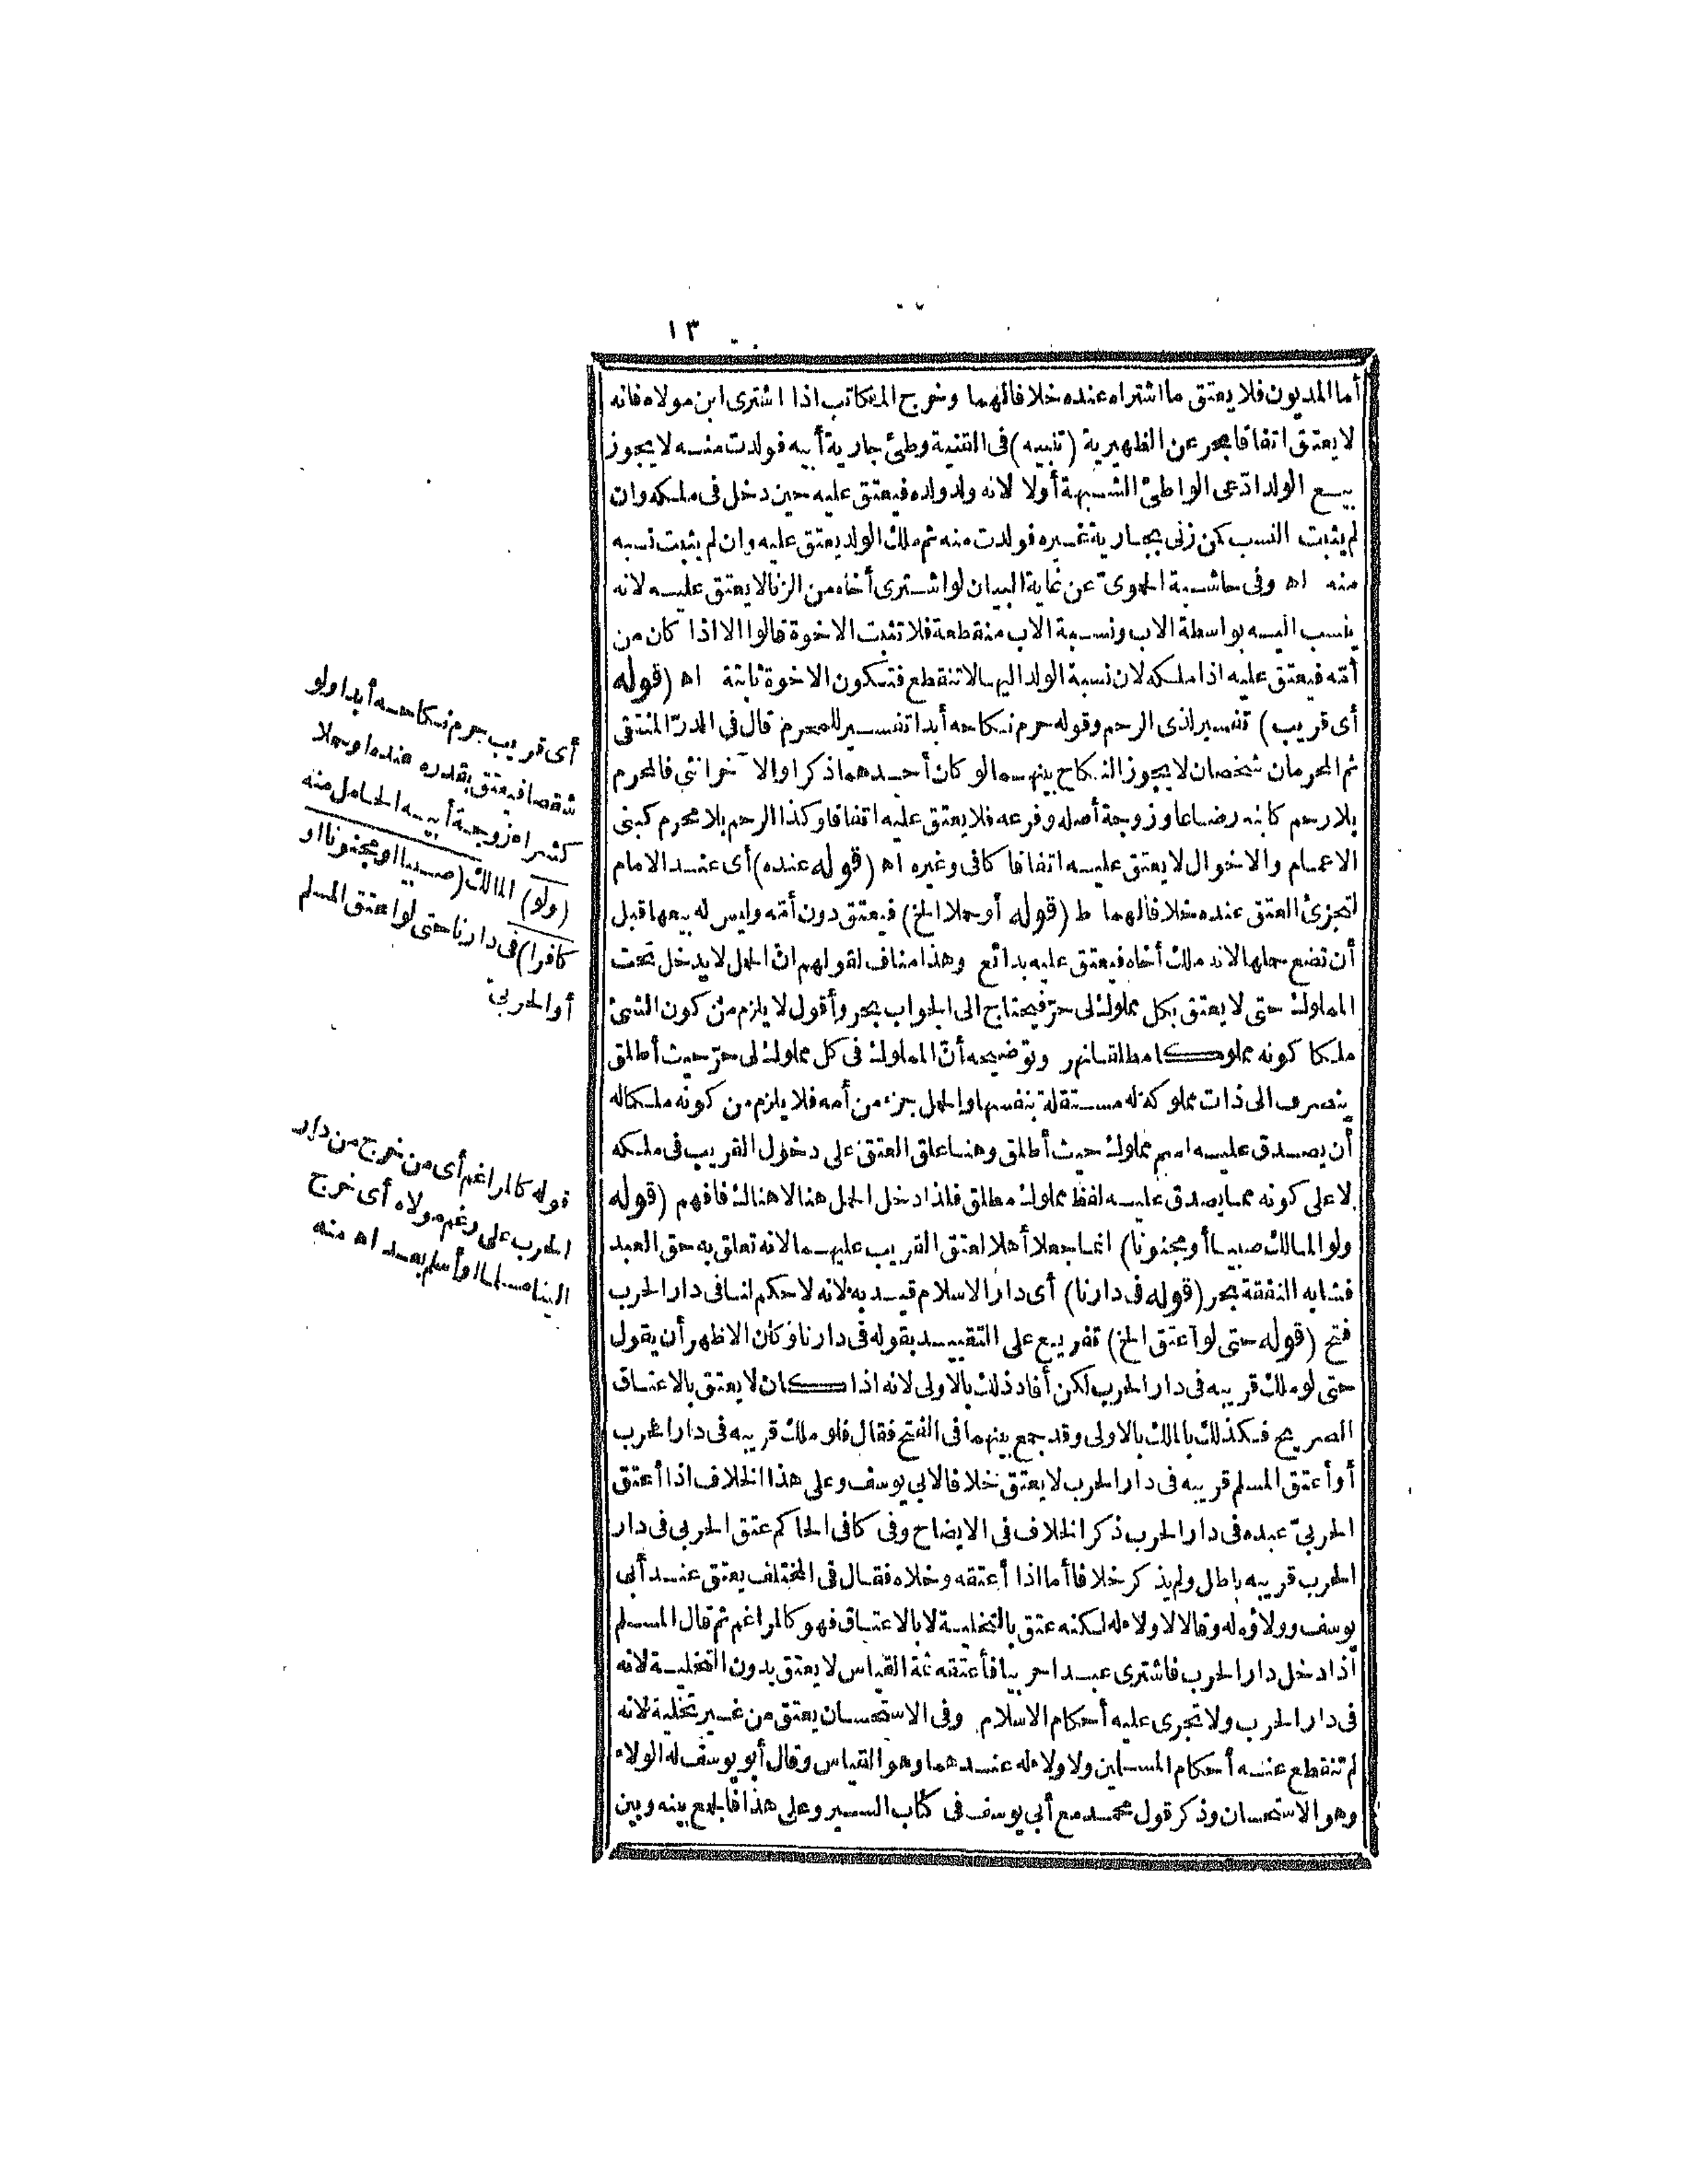 ١٣
أما المديون فلا يعتق ما اشتراه عنده خلافا لهما وخرج المكاتب اذا اشترى ابن مولاه فانه
لا يعتق اتفاقا بحر عن الظهيرية (تنبيه) فى القنية وطئ جارية أبيه فولدت منه لا يجوز
بيع الولد ادّعى الواطئ الشبهة أولا لانه ولد ولده فيعتق عليه حين دخل فى ملكه وان
لم يثبت النسب كمن زنى بجارية غيره فولدت منه ثم ملك الولد يعتق عليه وان لم يثبت نسبه
منه اه وفى حاشية الحموىّ عن غاية البيان لو اشترى أخاه من الزنا لا يعتق عليه لانه
ينسب اليه بواسطة الاب ونسبة الاب منقطعة فلا تثبت الاخوة قالوا الا اذا كان من
أمّه فيعتق عليه اذا ملكه لان نسبة الولد اليها لا تنقطع فتكون الاخوة ثابتة اه (قوله
أى قريب) تفسير لذى الرحم وقوله حرم نكاحه أبدا تفسير للمحرم قال فى الدرّ المنتقى
ثم المحرمان شخصان لا يجوز النكاح بينهما لو كان أحدهما ذكرا والآخر انثى فالمحرم
بلا رحم كابنه رضاعا وزوجة أصله وفرعه فلا يعتق عليه اتفاقا وكذا الرحم بلا محرم كبنى
الاعمام والاخوال لا يعتق عليه اتفاقا كافى وغيره اه (قوله عنده) أى عند الامام
لتجزئ العتق عنده خلافا لهما ط (قوله أو حملا الخ) فيعتق دون أمّه وليس له بيعها قبل
أن تضع حملها لانه ملك أخاه فيعتق عليه بدائع وهذا مناف لقولهم انّ الحمل لا يدخل تحت
المملوك حتى لا يعتق بكل مملوك لى حرّ فيحتاج الى الجواب بحر وأقول لا يلزم من كون الشئ
ملكا كونه مملوكا مطلقا نهر وتوضيحه أنّ المملوك فى كل مملوك لى حرّ حيث أطلق
ينصرف الى ذات مملوكة له مستقلة بنفسها والحمل جزء من أمه فلا يلزم من كونه ملكا له
أن يصدق عليه اسم مملوك حيث أطلق وهنا علق العتق على دخول القريب فى ملكه
لا على كونه مما يصدق عليه لفظ مملوك مطلق فلذا دخل الحمل هنا لا هنالك فافهم (قوله
ولو المالك صبيا أو مجنونا) انما جعلا أهلا لعتق القريب عليهما لانه تعلق به حق العبد
فشابه النفقة بحر (قوله فى دارنا) أى دار الاسلام قيد به لانه لا حكم لنا فى دار الحرب
فتح (قوله حتى لو اعتق الخ) تفريع على التقييد بقوله فى دارنا وكان الاظهر أن يقول
حتى لو ملك قريبه فى دار الحرب لكن أفاد ذلك بالاولى لانه اذا كان لا يعتق بالاعتاق
الصريح فكذلك بالملك بالاولى وقد جمع بينهما فى الفتح فقال فلو ملك قريبه فى دار الحرب
أو أعتق المسلم قريبه فى دار الحرب لا يعتق خلافا لابى يوسف وعلى هذا الخلاف اذا أعتق
الحربىّ عبده فى دار الحرب ذكر الخلاف فى الايضاح وفى كافى الحاكم عتق الحربى فى دار
الحرب قريبه باطل ولم يذكر خلافا أما اذا أعتقه وخلاه فقال فى المختلف يعتق عند أبى
يوسف وولاؤه له وقالا لا ولاء له لكنه عتق بالتخلية لا بالاعتاق فهو كالمراغم ثم قال المسلم
اذا دخل دار الحرب فاشترى عبدا حربيا فأعتقه ثمة القياس لا يعتق بدون التخلية لانه
فى دار الحرب ولا تجرى عليه أحكام الاسلام وفى الاستحسان يعتق من غير تخلية لانه
لم تنقطع عنه أحكام المسلمين ولا ولاء له عندهما وهو القياس وقال أبو يوسف له الولاء
وهو الاستحسان وذكر قول محمد مع أبى يوسف فى كتاب السير وعلى هذا فالجمع بينه وبين
أى قريب حرم نكاحه أبدا ولو
شقصا فيعتق بقدره عنده او حملا
كشراء زوجة أبيه الحامل منه
(ولو) المالك (صبيا او مجنونا او
كافرا) فى دارنا حتى لو اعتق المسلم
أو الحربىّ
قوله كالمراغم أى من خرج من دار
الحرب على رغم مولاه أى خرج
الينا مسلما او أسلم بعد اه منه